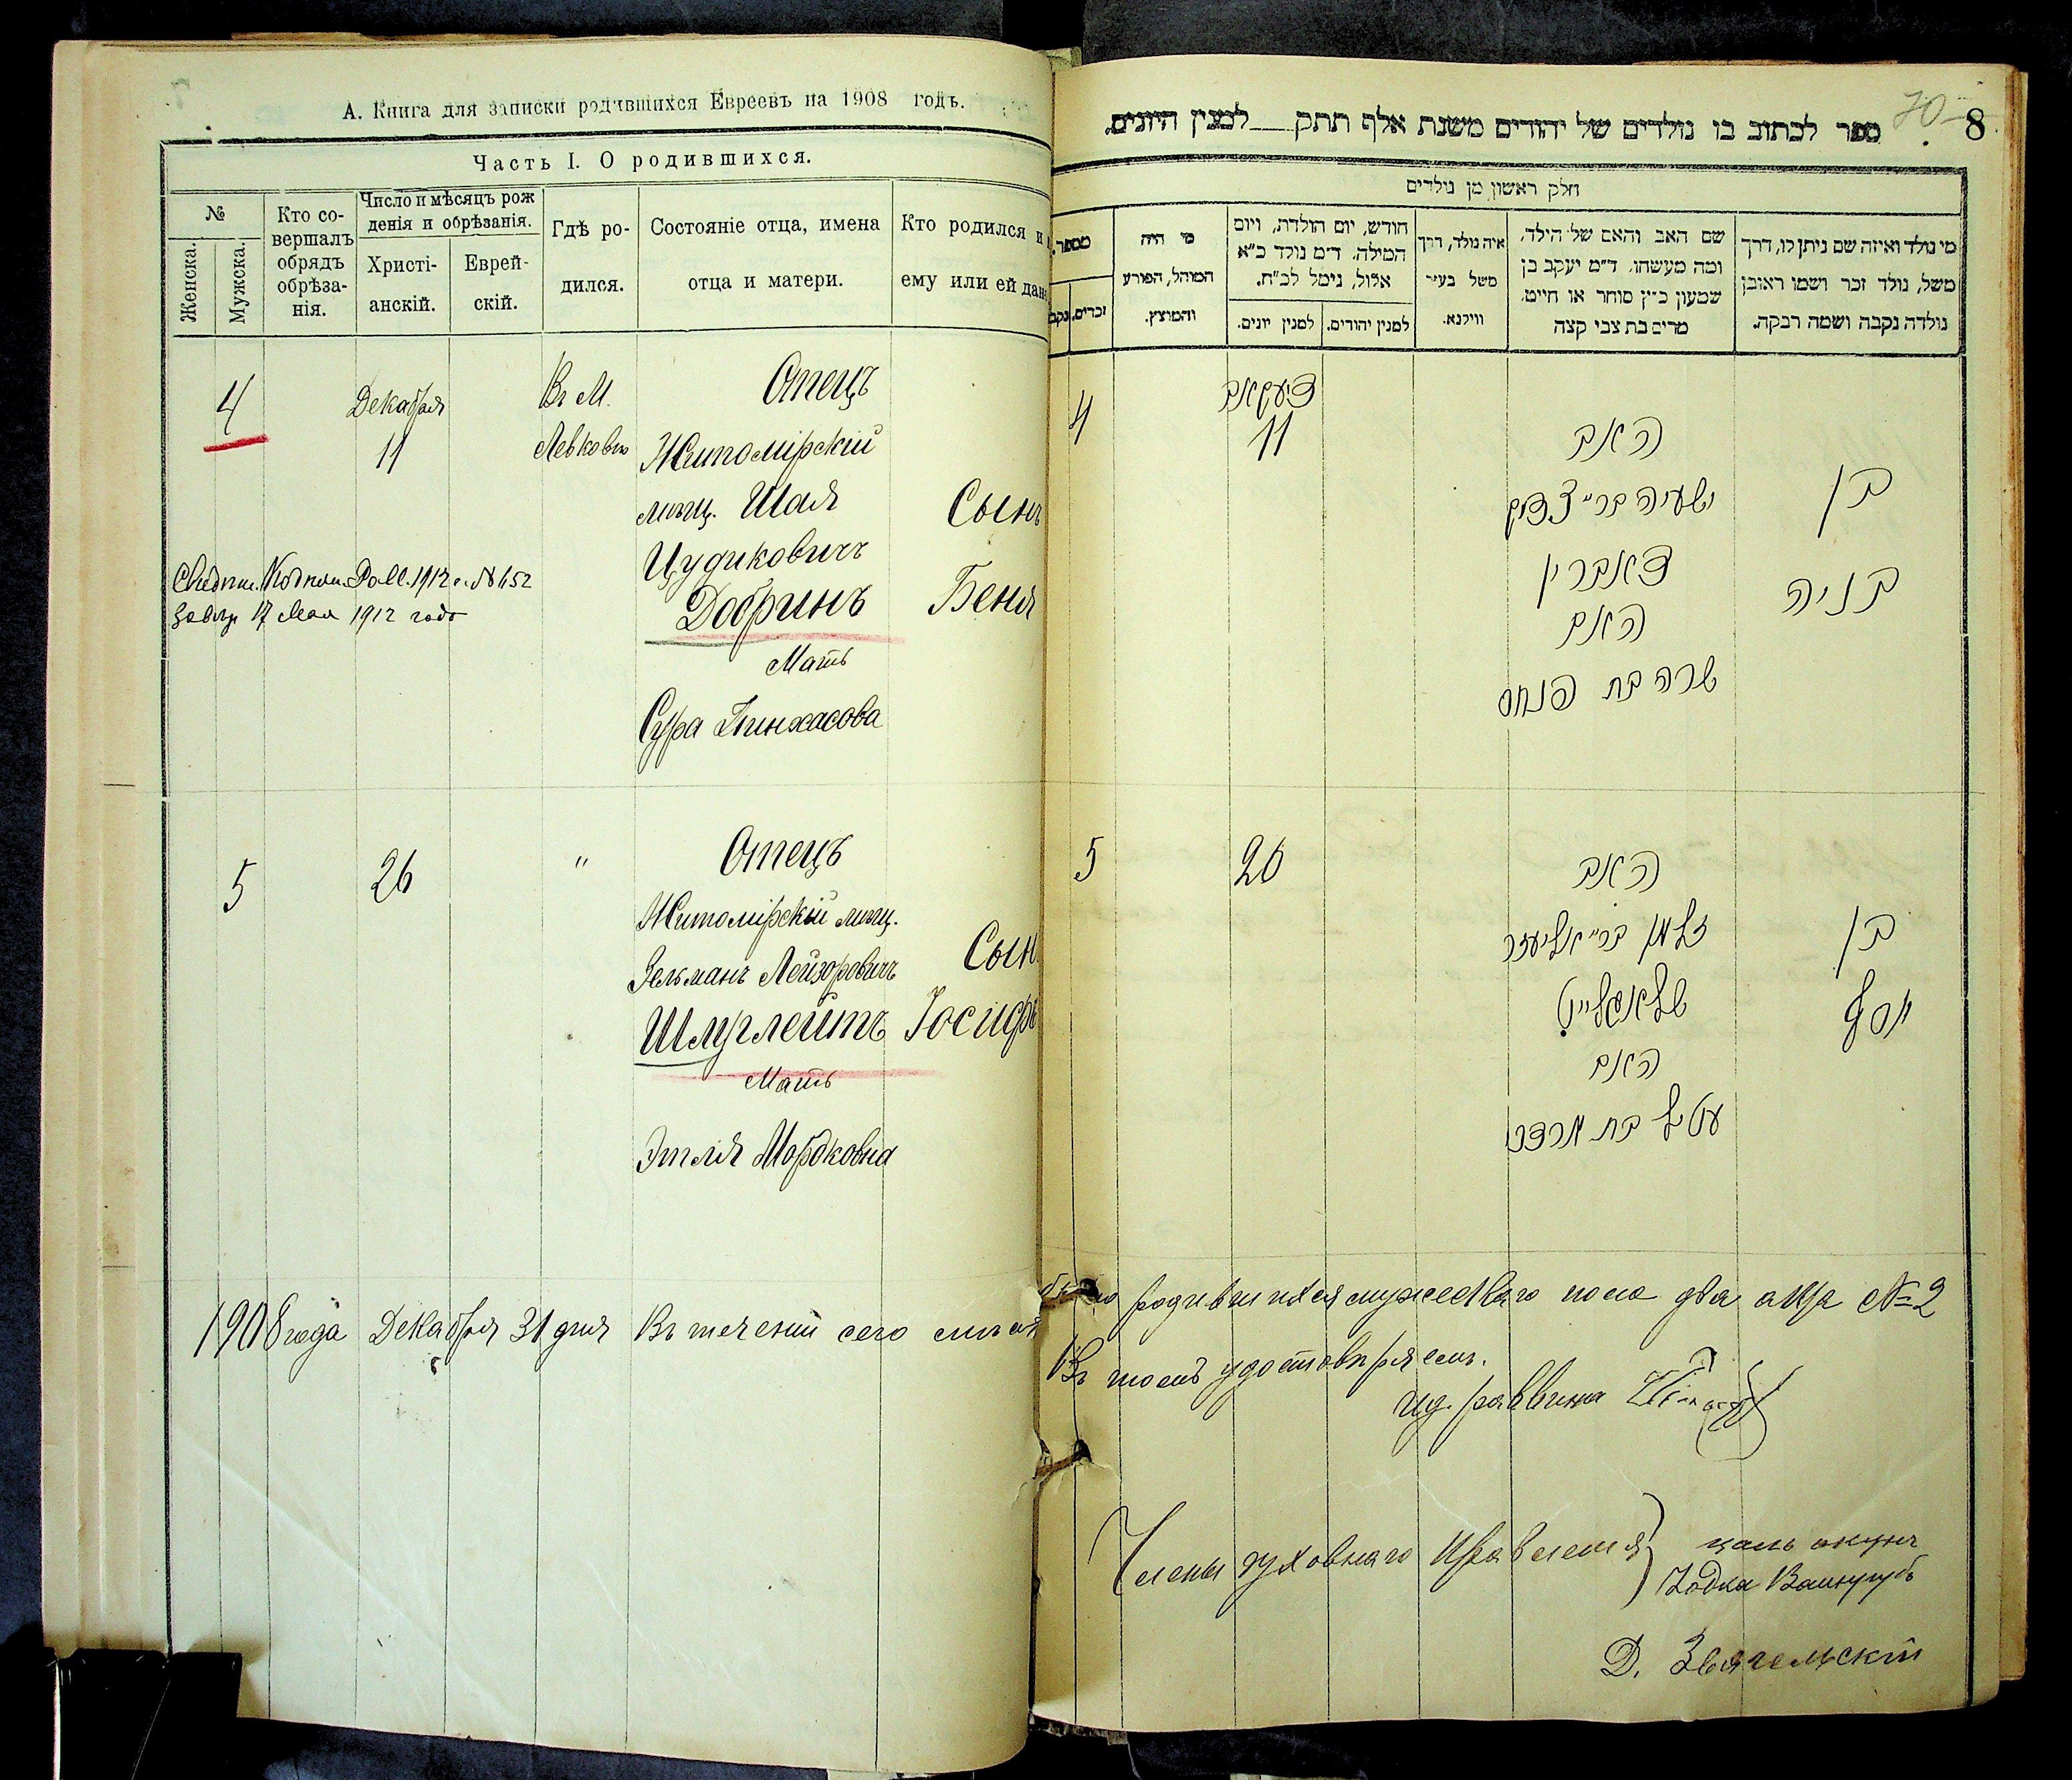 А. Книга для записки родившихся Евреевъ на 1908 годъ.
Часть I. О родившихся.
№
Женска.
Мужска.
Кто со-
вершалъ
обрядъ
обрѣза-
нія.
Число и мѣсяцъ рож
денія и обрѣзанія.
Христі-
анскій.
Еврей-
скій.
Гдѣ ро-
дился.
Состояніе отца, имена
отца и матери.
Кто родился и
ему или ей дан
4
Декабря
11
Въ М.
Отецъ
Житомірскій
мѣщ. Шая
Цудиковичъ
Добринъ
Мать
Сура Пинхасова
Сынъ
Беня
1912 г. №652
17 Мая 1912 года
5
26
"
Отецъ
Житомірскій мѣщ.
Зельманъ Лейзоровичъ
Шмуглейтъ
Мать
Этля Мордковна
Сын
Іосифъ
1908 года Декабря 31 дня Въ теченіи сего
70
8
ספר לכתוב בו נולדים של יהודים משנת אלף תתק___למנין היונים.
חלק ראשון מן נולדים
מספר.
זכרים.
נקב
מי היה
המוהל, הפורע
והמוצץ.
חודש, יום הולדת, ויום
המילה. ד״מ נולד כ״א
אלול, נימל לכ״ח.
למנין יונים.
למנין יהודים.
איה נולד, דרך
משל בעיר
ווילנא.
שם האב והאם של הילד,
ומה מעשהו. ד״מ יעקב בן
שמעון כ״ץ סוחר או חייט,
מרים בת צבי קצה
מי נולד ואיזה שם ניתן לו, דרך
משל, נולד זכר ושמו ראובן
נולדה נקבה ושמה רבקה.
4
דיעקאב
11
האב
ישעיה ב״ר צדוק
דאברין
האם
שרה בת פנחס
בן
בניה
5
26
האב
זלמן ב״ר אליעזר
האם
עטיל בת מרדכי
בן
יוסף
родившихся мужескаго пола два №2
Въ томъ удостовѣряемъ.
и.д. раввина
Члены духовнаго Правленія
Д. Звягельскій